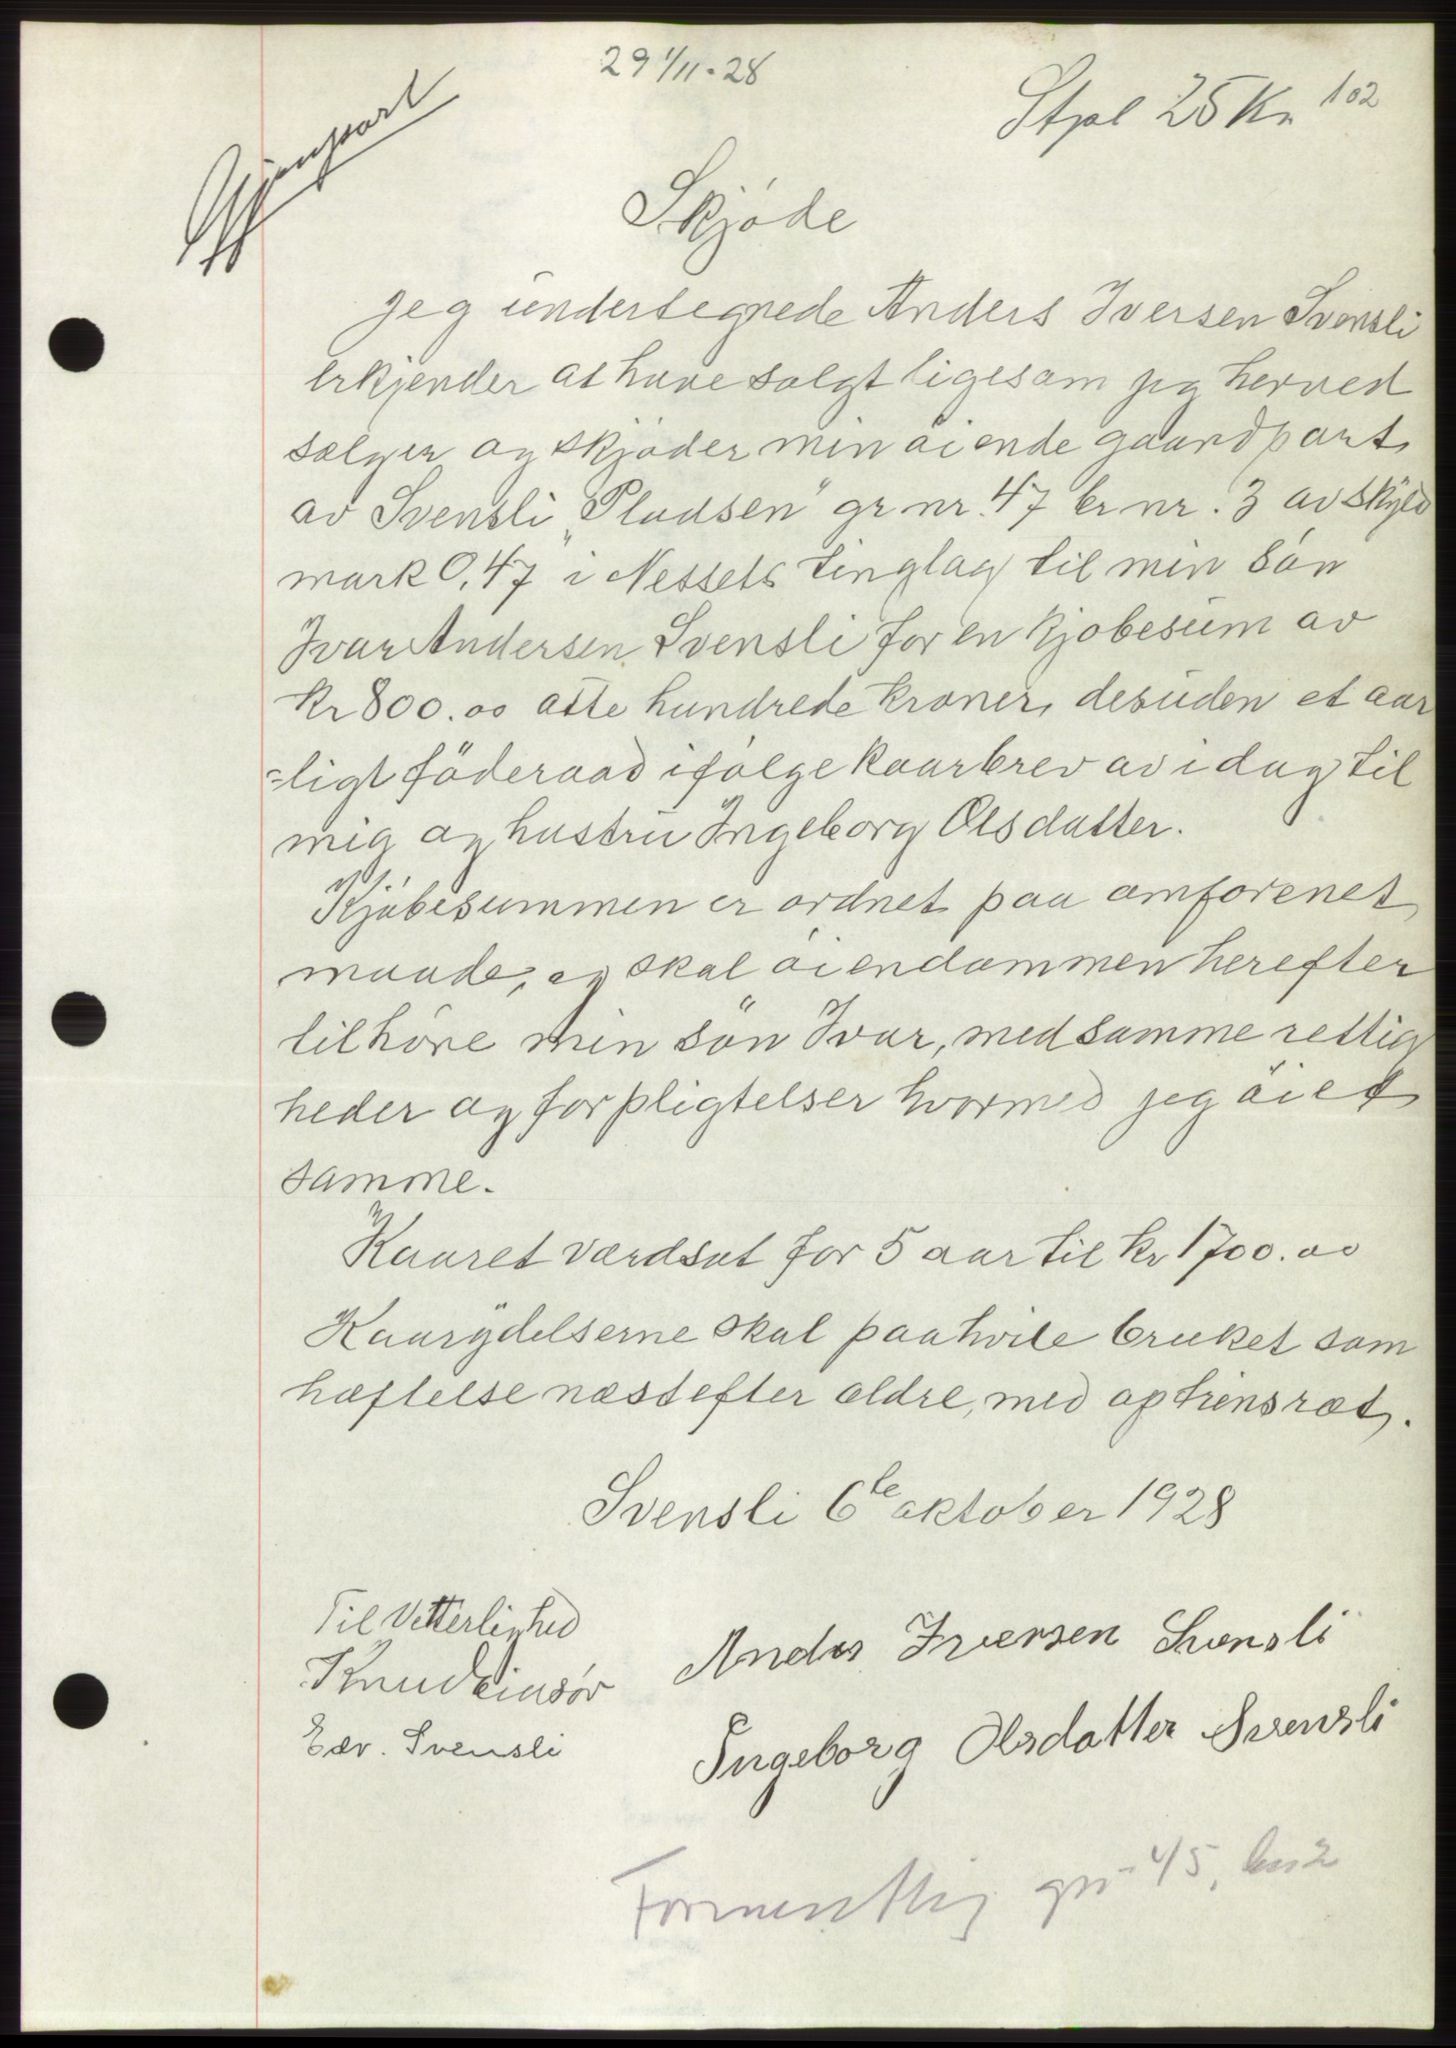 29 1/11-28
102
Stpl 25 Kr
Gjenpart
Skjøde
Jeg undertegnede Anders Iversen Svensli
erkjender at have solgt ligesom jeg herved
sælger og skjøder min eiende gaardpart
av Svensli "Pladsen" gr nr. 47 br nr. 3 av skyld
mark 0,47 i Nessets tinglag til min søn
Ivar Andersen Svensli for en kjøbesum av
kr 800.00 otte hundrede kroner, desuden et aar
=ligt föderaad ifølge kaarbrev av idag til
mig og hustru Ingeborg Olsdatter.
Kjøbesummen er ordnet paa omforenet
maade, og skal eiendommen herefter
tilhøre min søn Ivar, med samme rettig
heder og forpligtelser hvormed jeg eiet
samme.
Kaaret værdsat for 5 aar til kr 1700.00
Kaarydelserne skal paahvile bruket som
hæftelse næst efter ældre, med optrinsret.
Svensli 6te oktober 1928
Til Vitterlighed
Edv. Svensli
Anders Iversen Svensli
Ingeborg Olsdatter Svensli
Formentlig gnr 45, bnr 2